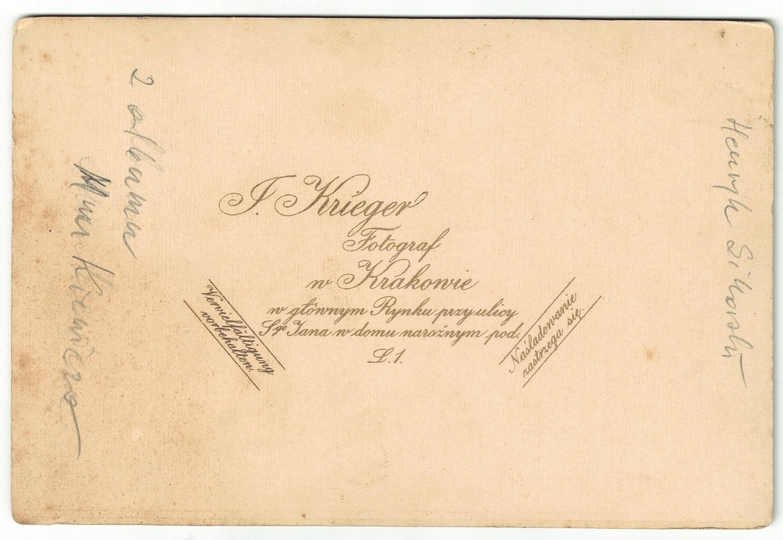 I. Krieger
Fotograf
w Krakowie
w głównym Rynku przy ulicy
Sgo Jana w domu narożnym pod.
L.1.
Vervielfältigung
vorbehalten.
Naśladowanie
zastrzega się.
Z albumu
Henryk Sikorski